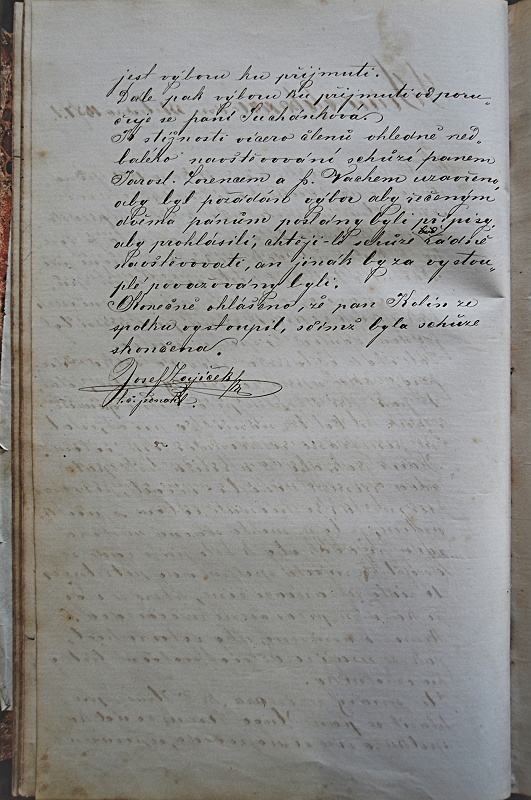 jest výboru ku přijmuti.
Dále pak výboru ku přijmuti odporu-
čuje se paní Suchánkova.
K stížnosti vícero členů ohledně ned-
balého navštěvování schůzí panem
Jarosl. Lorencem a p. Vachem uzavřeno,
aby byl požádán výbor aby řečeným
dvěma pánům poslány byli přípisy,
aby prohlásili, chtějí-li schůze řádně
navštěvovati, an jinák by za vystou-
plé považovány byli.
Konečně ohlášeno, že pan Kolín ze
spolku vystoupil, sčímž byla schůze
skončena.
Josef Zajíček
t. č. jednatel.